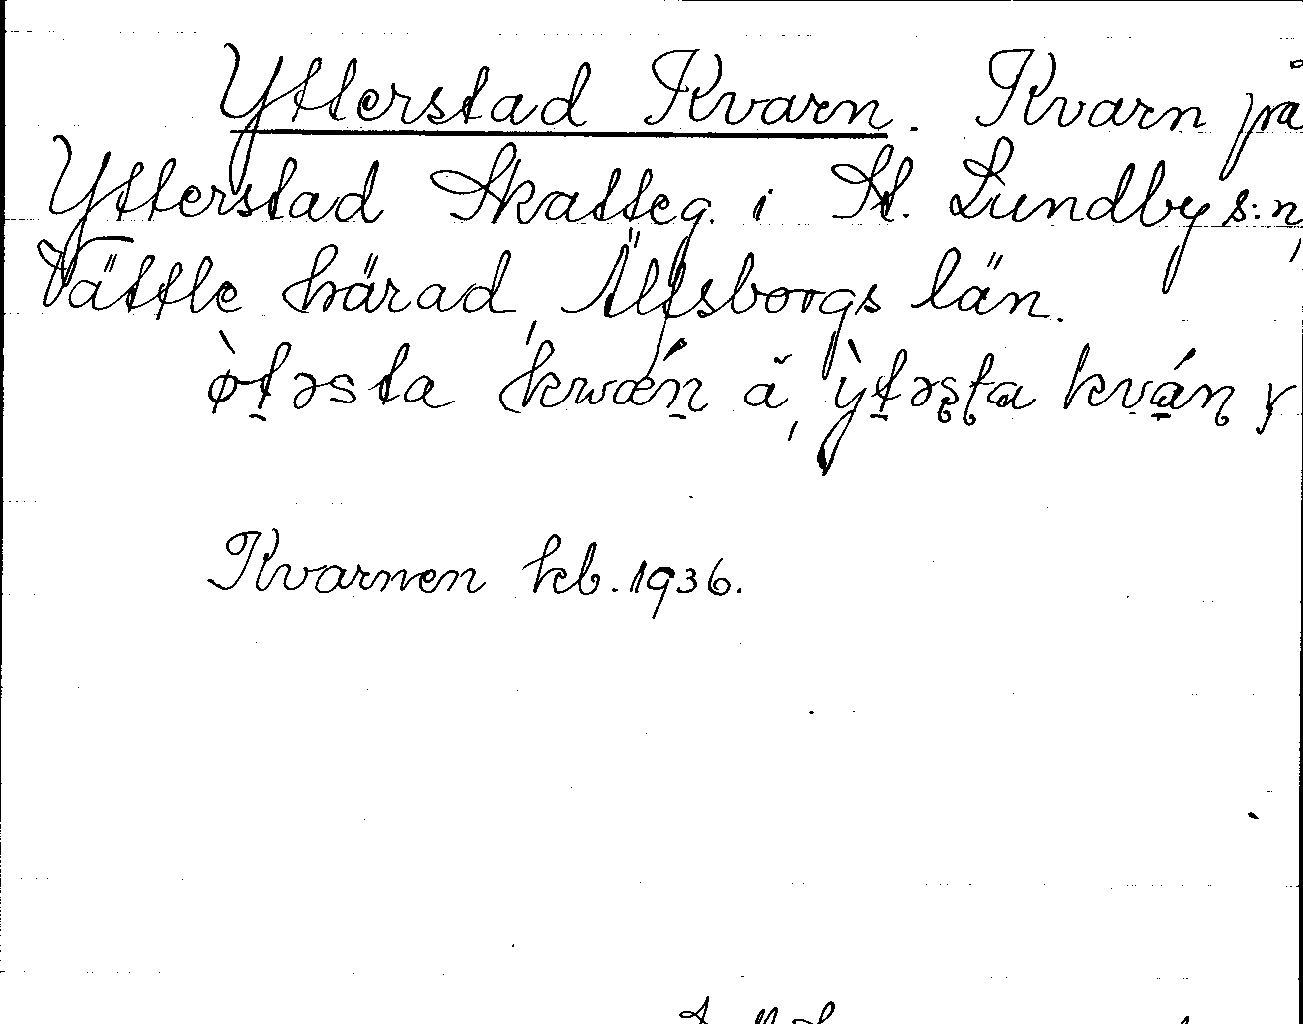 Ytterstad Kvarn. Kvarn på
Ytterstad Skatteg. i St. Lundby s:n,
Vättle härad, Älfsborgs län.
ø̀t̠əsta kwǽn̠ ă, ỳt̠əʂʈa kvá̠ɳ y
Kvarnen kb. 1936.